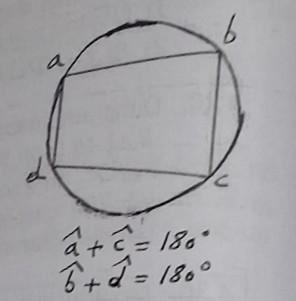 a
b
d
c
â + ĉ = 180°
b̂ + d̂ = 180°